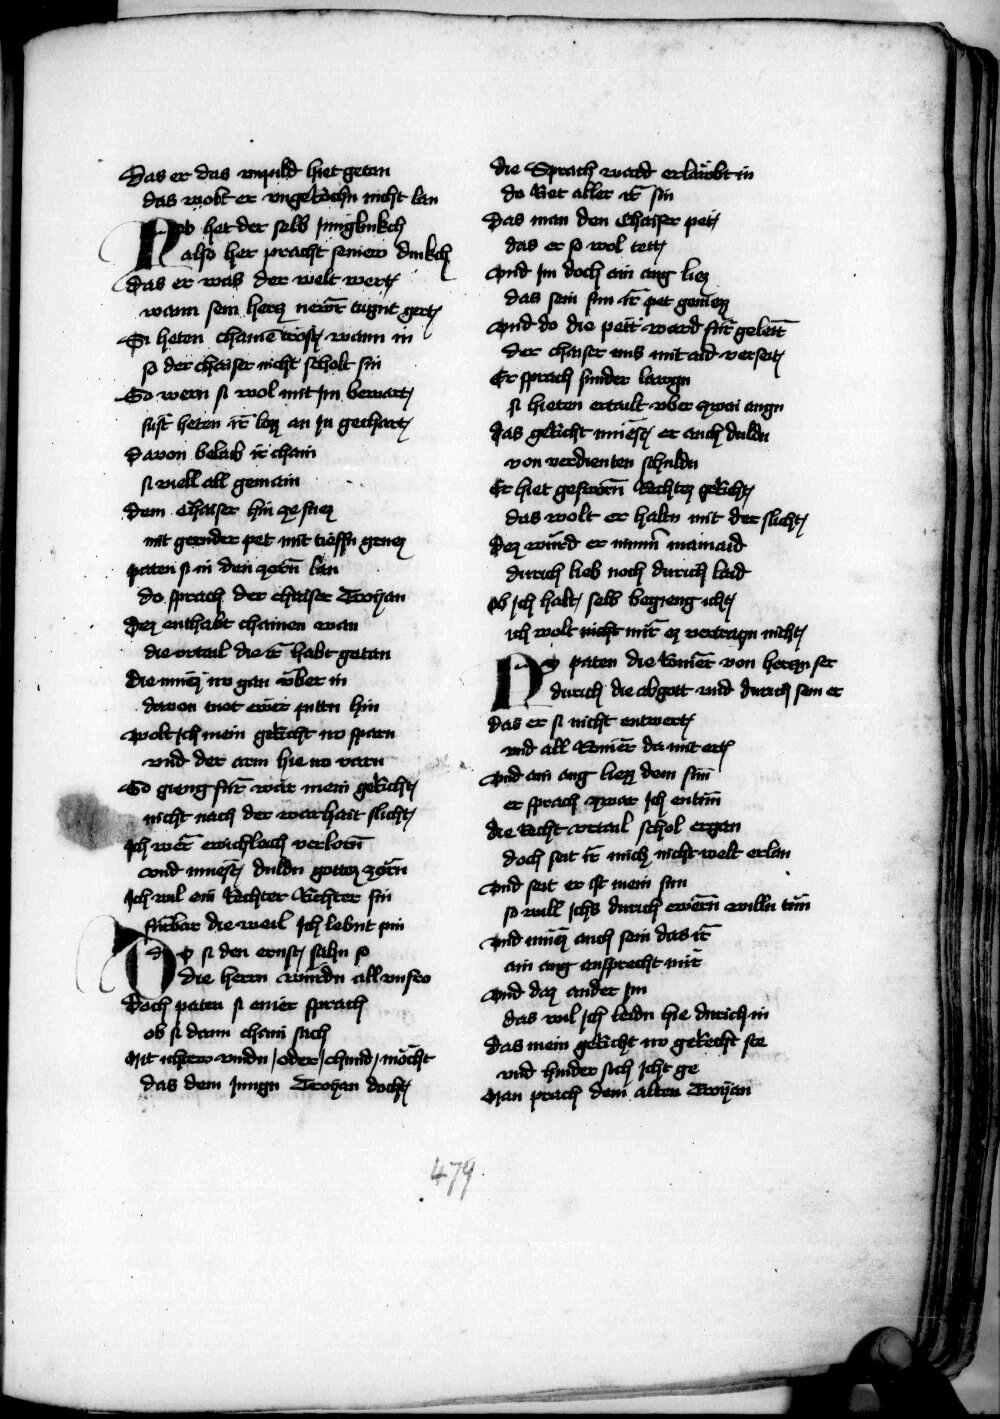 Das er das unpild hiet getan
das wolt er ungerochn nicht lan
Nv het der selb jungkukch
also her pracht seinew dinkch
das er was der welt wert
wann sein hertz newr tugnt gert
Si heten chain trost wann in
so der chaiser nicht scholt sin
So wern si wol mit im bewart
sust heten ir lotz an in gechart
Davon belaib ir chain
si viell all gemain
Dem chaiser hin ze fuez
mit gernder pet mit trieffn gruez
paten si in den zorn lan
do sprach der chaiser Troyan
Dez enthabt chainen wan
die urtail die ir habt getan
Die muez nv gan über in
davon tuot ewer pittn hin
wolt ich mein gericht nv sparn
und der arm hie nv varn
So gieng für war mein gericht
nicht nach der warhait slicht
ich wer ewichleich verlorn
und muest duldn gottez zorn
ich wil ein Rechter Richter sin
fürbar die weil ich lebnt pin
Do si den ernst sahn so
die herrn wurdn all unfro
Doch paten si einer sprach
ob si daran chain sach
Mit ichtew vindn oder chund möcht
das dem jungn Troyan docht
die Sprach ward erlaubt in
do Riet aller ir sin
Das man den Chaiser pet
das er so wol tett
und im doch ain aug liez
das sein sun ir pet geniez
und do die pett ward für geleit
der chaiser uns mit aid verseit
Er sprach sunder laugn
si hieten ertailt über zwai augn
das gericht muest er auch duldn
von verdienten schuldn
Er hiet gesworn Rechtez gericht
das wolt er haltn mit der slicht
Dez würd er nimmer mainaid
durich lieb noch durich laid
ob ich halt selb begieng icht
ich wolt nicht mir ez vertragn nicht
Do paten die Romer von hertzn ser
durich die abgott und durich sein er
das er si nicht entwert
und all Romer da mit ert
und ain aug liezz dem sun
er sprach zwar ich entun
die Recht urtail schol ergan
doch seit ir mich nicht welt erlan
und seit er ist mein sun
so will ichs durich ewern willn tun
und muez auch sein das ir
ain aug aussprecht mir
und daz ander im
das wil ich leidn hie durich in
das mein gericht nv gerecht ste
und hinder sich icht ge
Man prach dem alten Troyan
479